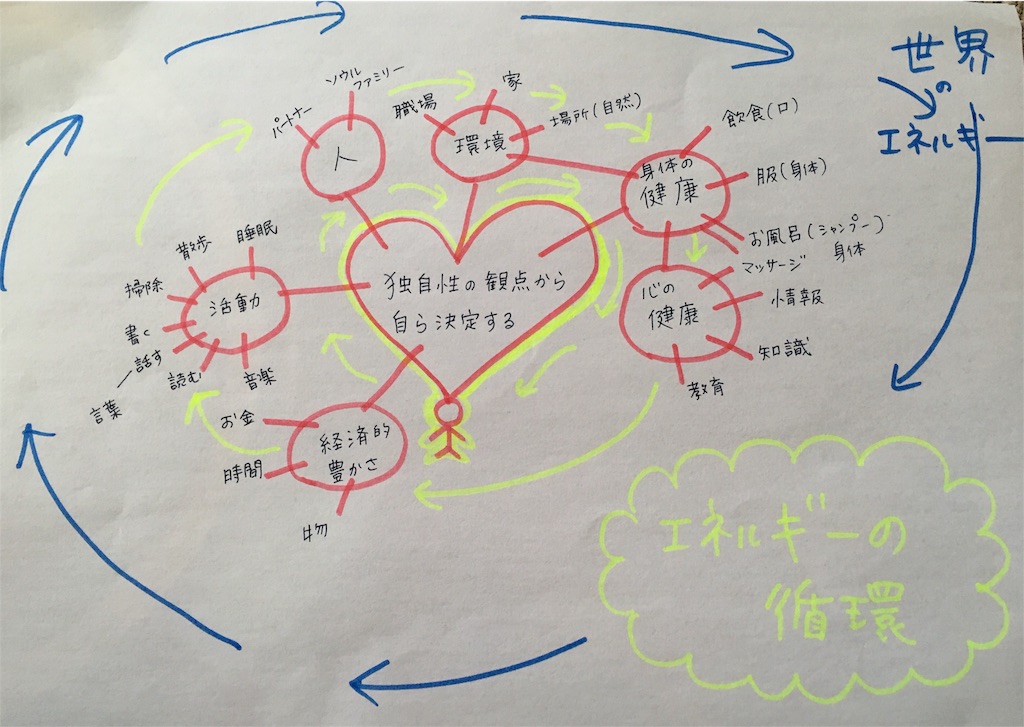 世界
の
エネルギー
ソウル
ファミリー
パートナー
人
職場
家
場所(自然)
環境
飲食(口)
身体の
健康
服(身体)
お風呂(シャンプー)
身体
マッサージ
心の
健康
情報
知識
教育
独自性の観点から
自ら決定する
睡眠
散歩
掃除
活動
書く
話す
言葉
読む
音楽
お金
経済的
豊かさ
時間
物
エネルギーの
循環